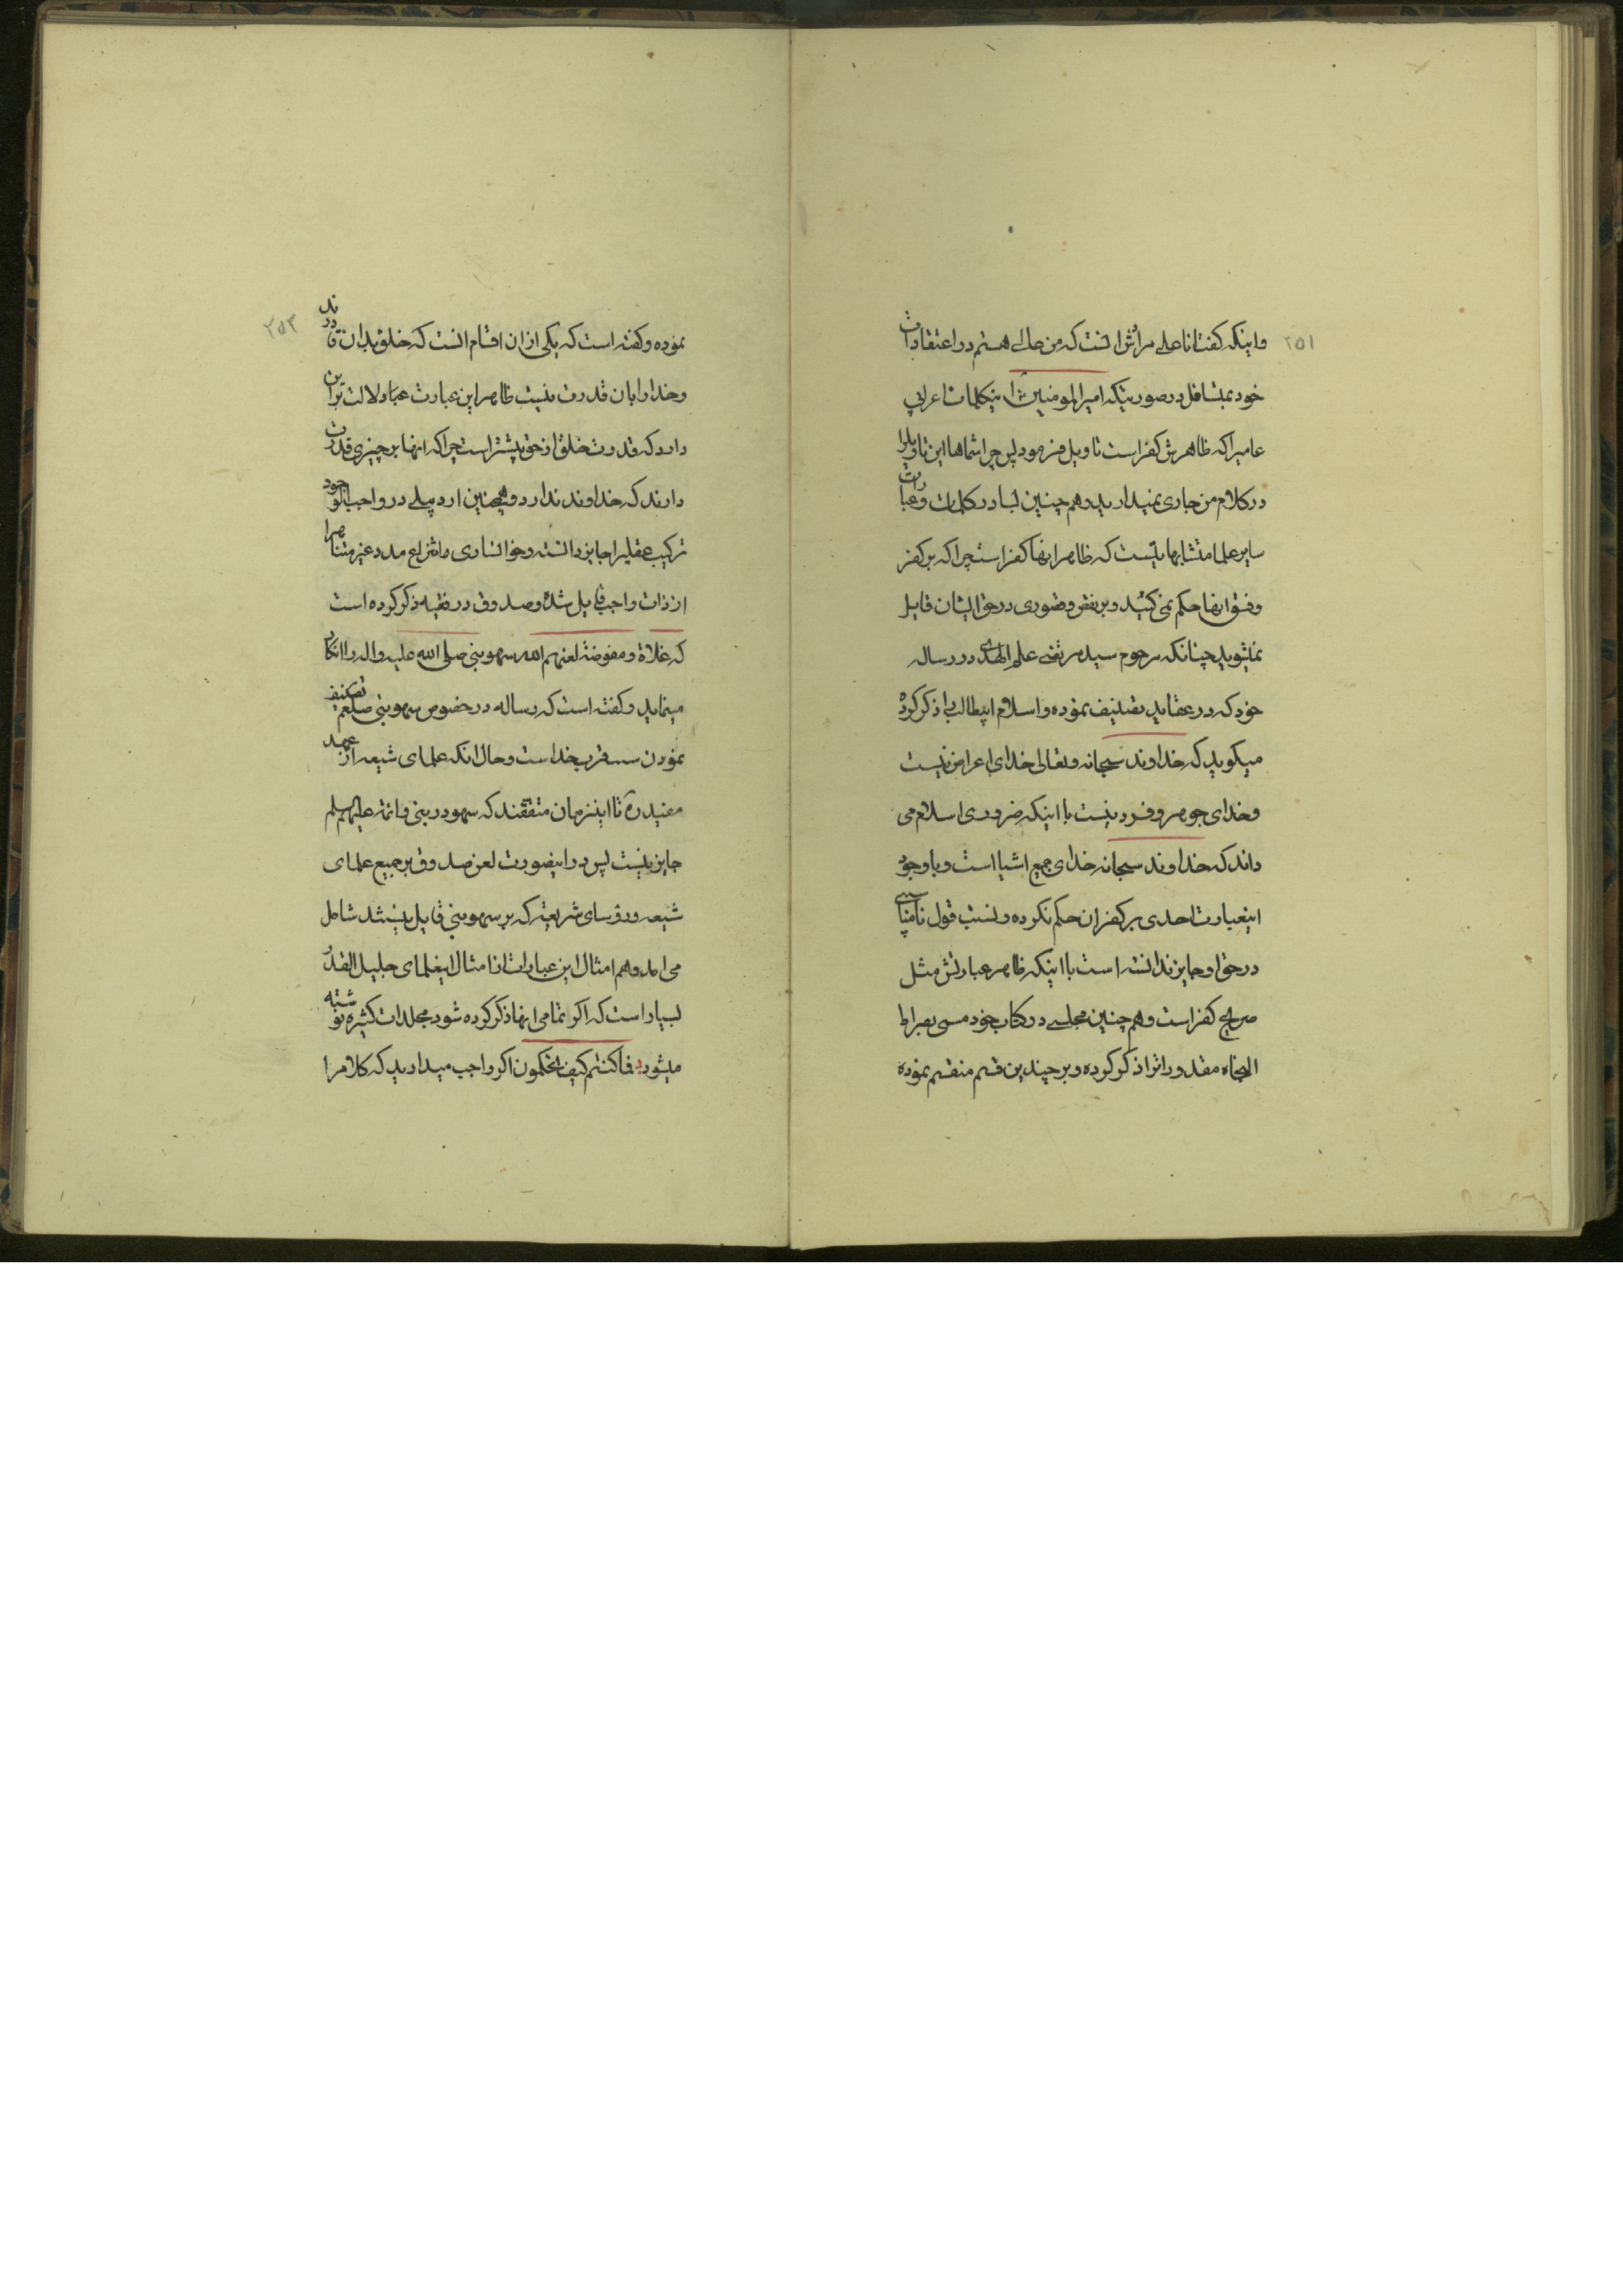 ۲۵۱
و اینکه گفت انا علی مرادش آنست که من عالی هستم در اعتقادات
خود بمتسافل در صورتیکه امیر المومنین اینکلمات اعرابی
عامیرا که ظاهرش کفر است تاویل فرمود پس چرا شماها این تاویلرا
در کلام من جاری نمیدارید و هم چنین بسا در کلمات و عبارات
سایر علما متشابهاتیست که ظاهر انها کفر است چرا که بر کفر
و فسق انها حکم نمی کنید و بر نقص و قصوری در حق ایشان قایل
نمیشوید چنانکه مرحوم سید مرتضی علم الهدی در رساله
خود که در عقاید تصنیف نموده و اسلام ابیطالب را ذکر کرده
میکوید که خداوند سبحانه و تعالی خدای اعراض نیست
و خدای جوهر و فرد نیست با اینکه ضروری اسلام می
داند که خداوند سبحانه خدای جمیع اشیا است و با وجود
اینعبارت احدی بر کفر ان حکم نکرده و نسبت قول ناسپاسی
در حق او جایز ندانسته است با اینکه ظاهر عبارتش مثل
صریح کفر است و هم چنین مجلسی در کتاب خود مسمی بصراط
النجاه مقدوراترا ذکر کرده و بر چندین قسم منقسم نموده
۲۵۲
نموده و کفته است که یکی از ان اقسام انست که خلق بدان قادرند
و خدا را بان قدرت نیست ظاهر این عبارت دلالت براین
دارد که قدرت خلق از حق بیشتر است چرا که انها بر چیزی قدرت
دارند که خداوند ندارد و همچنین اردبیلی در واجب الوجود
ترکیب عقلیرا جایز دانسته و خوانساری بانتزاع مدد غیر متناهیرا
از ذات واجب قایل شده و صدوق در فقیه ذکر کرده است
که غلاة و مفوضة لعنهم الله سهو نبی صلی الله علیه و اله را انکار
مینماید و کفته است که رساله در خصوص سهو نبی صلعم تصنیف
نمودن قرب خداست و حال انکه علمای شیعه از عهد
مفید ره تا اینزمان متفقند که سهو در نبی و ائمه علیهم سلم
جایز نیست پس در اینصورت لعن صدوق بر جمیع علمای
شیعه و رؤسای شریعت که بر سهو نبی قایل نیستند شامل
می اید و هم امثال این عبارات از امثال اینعلمای جلیل القدر
بسیار است که اکر تمامی انها ذکر کرده شود مجلدات کثیره نوشته
میشود فاکنتم کیف تحکمون اکر واجب میدارید که کلام را